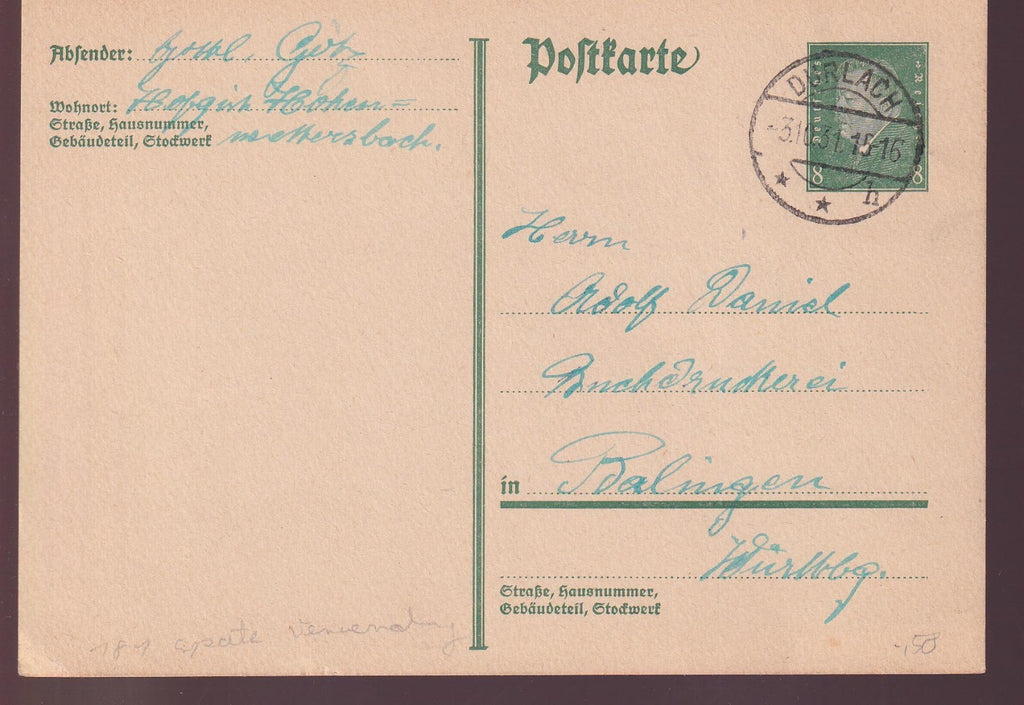 Absender: Gottl. Götz
Wohnort: Hofgut Hohen=
Straße, Hausnummer,
Gebäudeteil, Stockwerk
wettersbach.
Postkarte
DURLACH
-3.10.31.15-16
h
8 8
Herrn
Adolf Daniel
Buchdruckerei
in Balingen
Württbg.
Straße, Hausnummer,
Gebäudeteil, Stockwerk
181 späte Verwendung
-,50